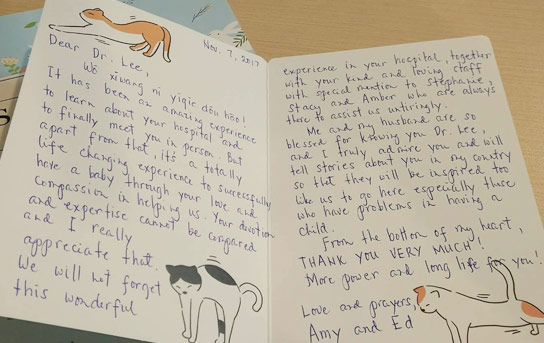 Nov. 7, 2017
Dear Dr. Lee,
Wǒ xiwang ni yiqie dōu hǎo!
It has been an amazing experience
to learn about your hospital and
to finally meet you in person. But
apart from that, it's a totally
life changing experience to successfully
have a baby through your love and
compassion in helping us. Your devotion
and expertise cannot be compared
and I really
appreciate that.
We will not forget
this wonderful
experience in your hospital, together
with your kind and loving staff
with special mention to Stephanie,
Stacy and Amber who are always
there to assist us untiringly.
Me and my husband are so
blessed for knowing you Dr. Lee,
and I truly admire you and will
tell stories about you in my country
so that they will be inspired too
like us to go here especially those
who have problems in having a
child.
From the bottom of my heart,
THANK YOU VERY MUCH!
More power and long life for you!
Love and prayers,
Amy and Ed